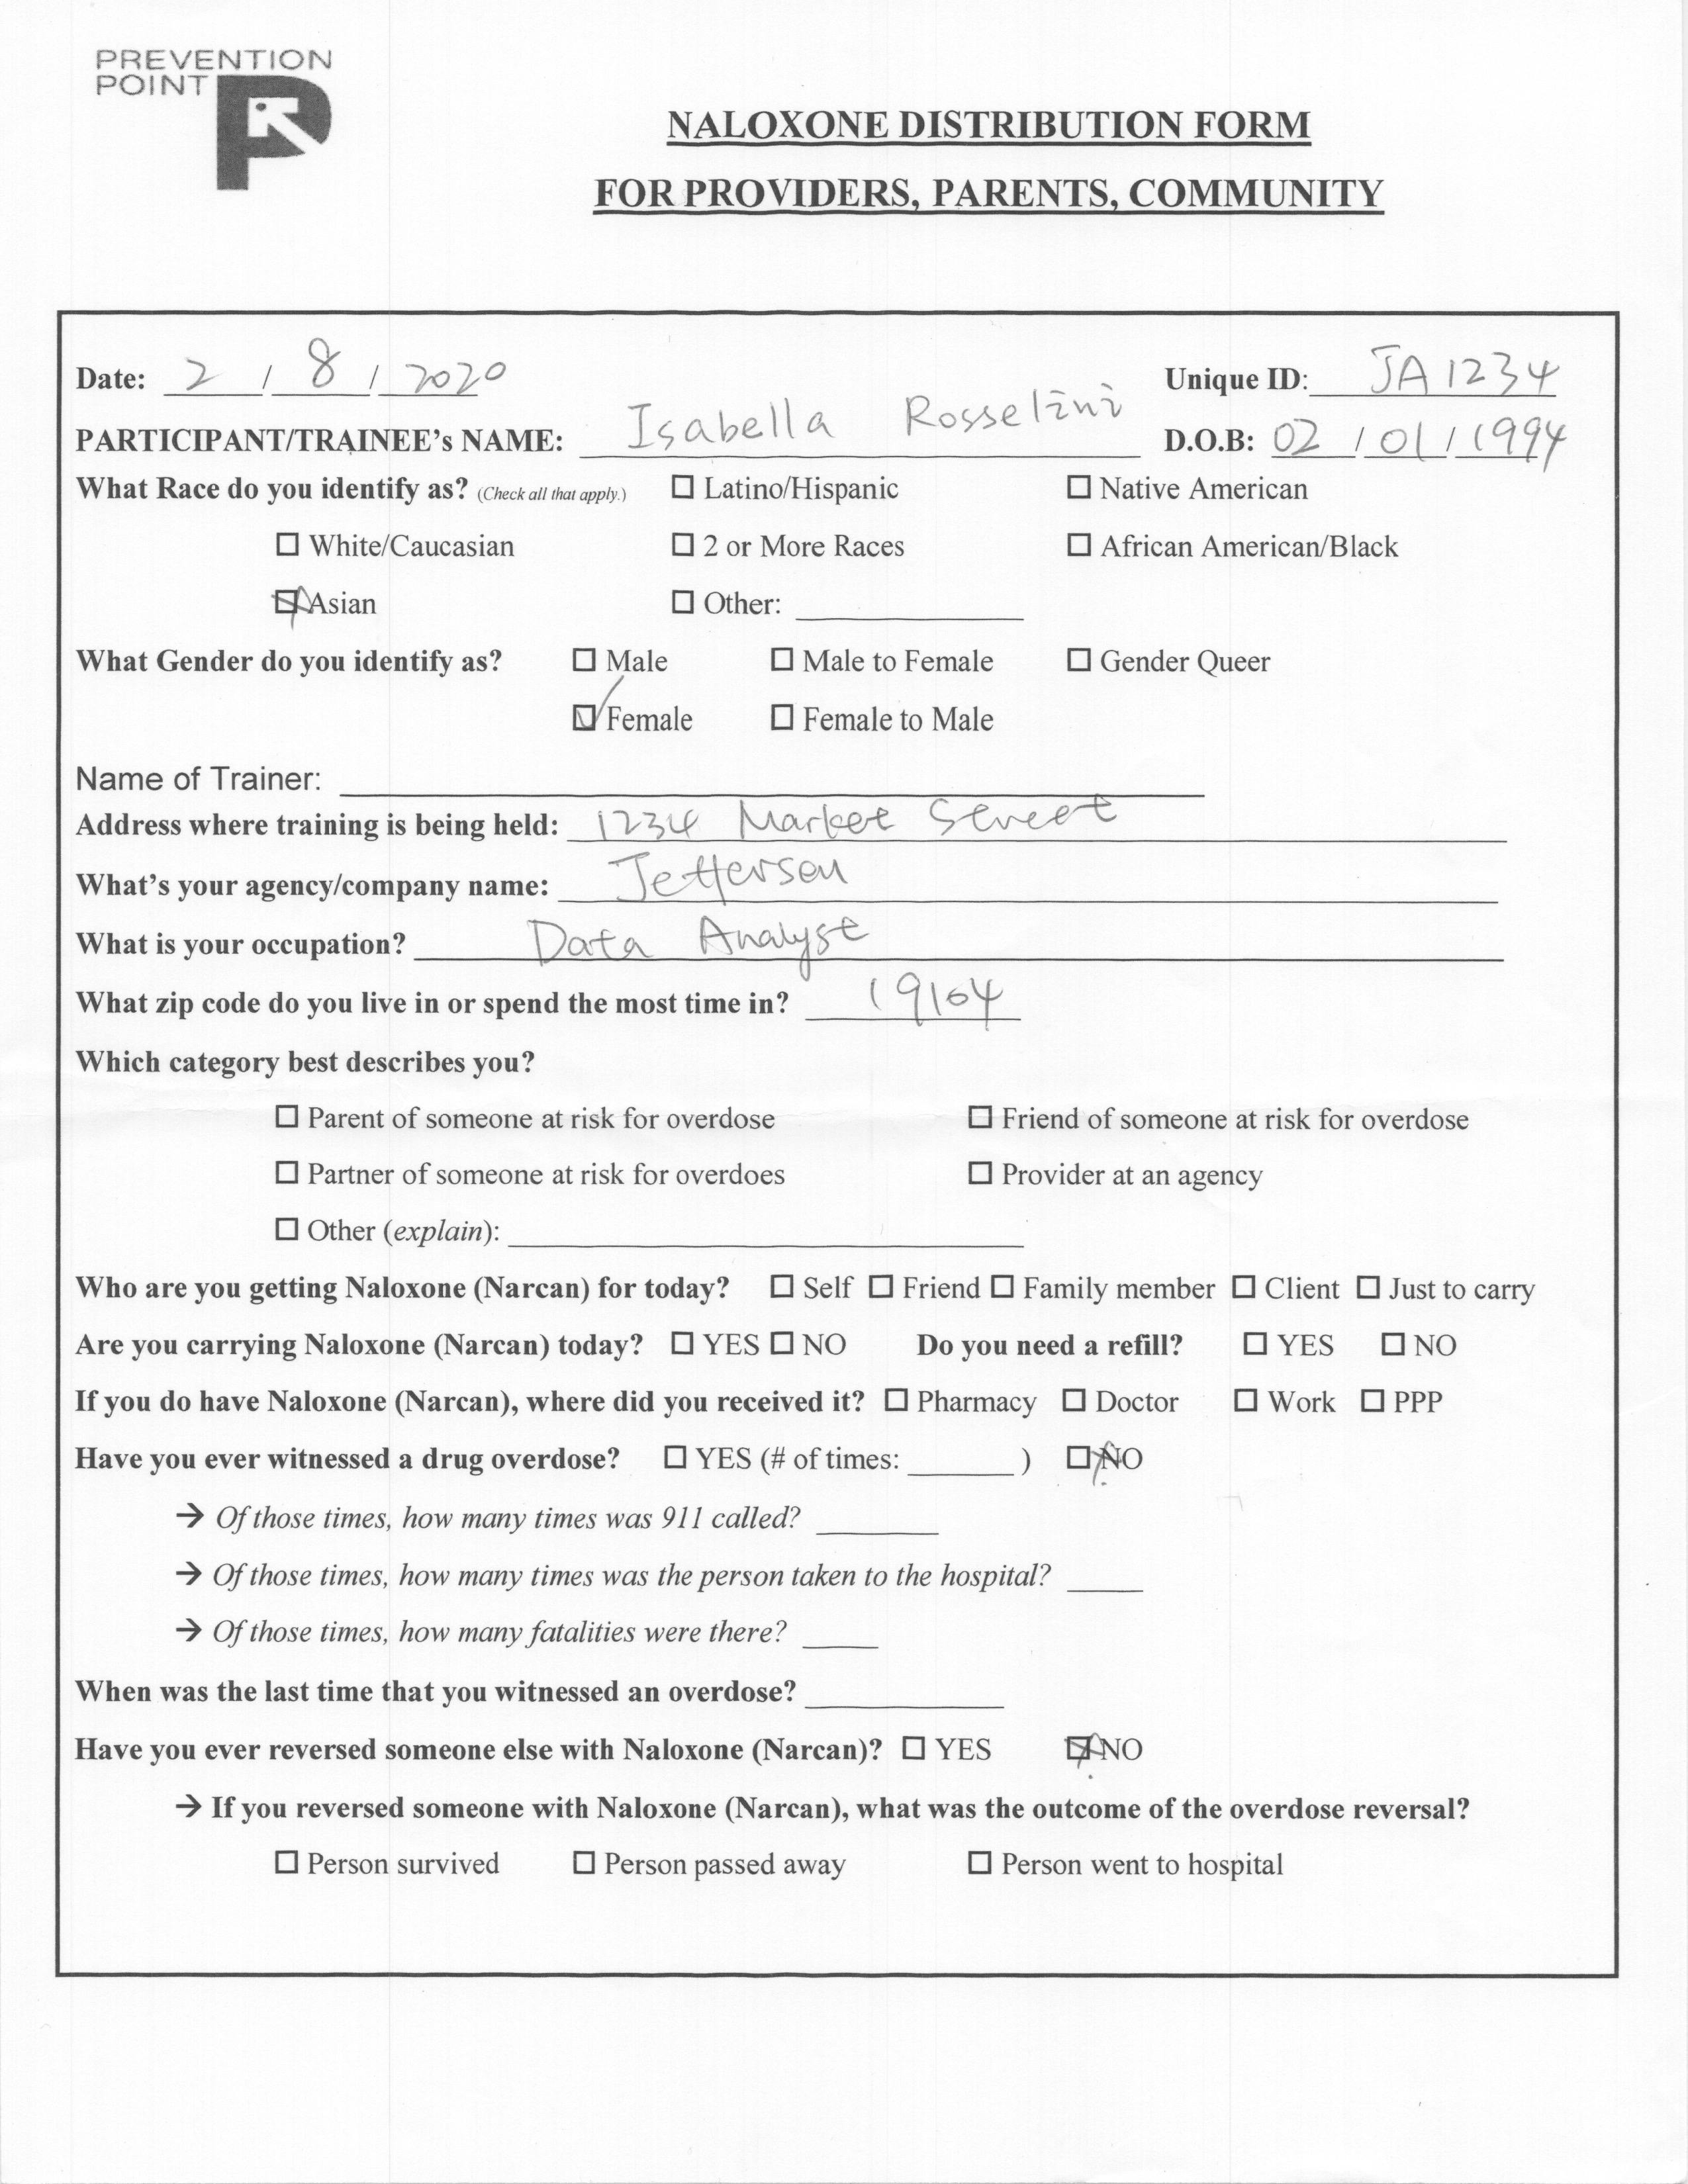 PREVENTION
POINT
NALOXONE DISTRIBUTION FORM
FOR PROVIDERS, PARENTS, COMMUNITY
Date: 2 / 8 / 2020 Unique ID: JA1234
PARTICIPANT/TRAINEE's NAME: Isabella Rosselini D.O.B: 02 / 01 / 1994
What Race do you identify as? (Check all that apply.) ☐ Latino/Hispanic ☐ Native American
☐ White/Caucasian ☐ 2 or More Races ☐ African American/Black
☒ Asian ☐ Other: ____
What Gender do you identify as? ☐ Male ☐ Male to Female ☐ Gender Queer
☑ Female ☐ Female to Male
Name of Trainer: ____
Address where training is being held: 1234 Market Street
What's your agency/company name: Jefferson
What is your occupation? Data Analyst
What zip code do you live in or spend the most time in? 19104
Which category best describes you?
☐ Parent of someone at risk for overdose ☐ Friend of someone at risk for overdose
☐ Partner of someone at risk for overdoes ☐ Provider at an agency
☐ Other (explain): ____
Who are you getting Naloxone (Narcan) for today? ☐ Self ☐ Friend ☐ Family member ☐ Client ☐ Just to carry
Are you carrying Naloxone (Narcan) today? ☐ YES ☐ NO Do you need a refill? ☐ YES ☐ NO
If you do have Naloxone (Narcan), where did you received it? ☐ Pharmacy ☐ Doctor ☐ Work ☐ PPP
Have you ever witnessed a drug overdose? ☐ YES (# of times: ____ ) ☒ NO
→ Of those times, how many times was 911 called? ____
→ Of those times, how many times was the person taken to the hospital? ____
→ Of those times, how many fatalities were there? ____
When was the last time that you witnessed an overdose? ____
Have you ever reversed someone else with Naloxone (Narcan)? ☐ YES ☒ NO
→ If you reversed someone with Naloxone (Narcan), what was the outcome of the overdose reversal?
☐ Person survived ☐ Person passed away ☐ Person went to hospital